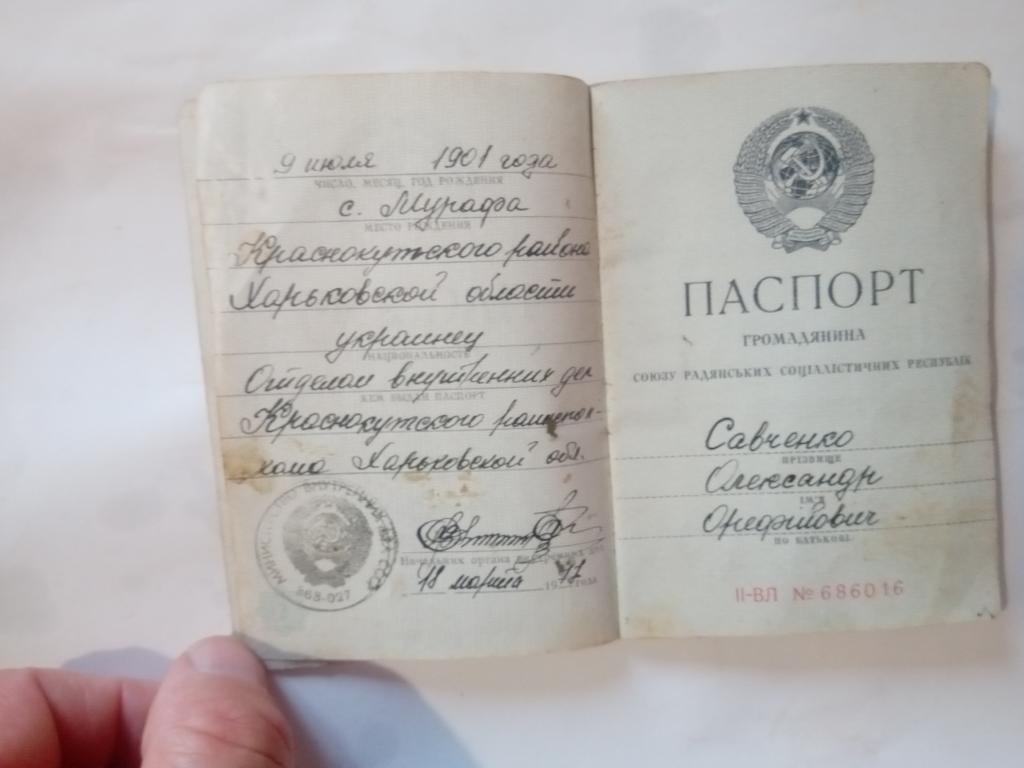 9 июля 1901 года
ЧИСЛО, МЕСЯЦ, ГОД РОЖДЕНИЯ
с. Мурафа
МЕСТО РОЖДЕНИЯ
Краснокутского района
Харьковской области
украинец
НАЦИОНАЛЬНОСТЬ
Отделом внутренних дел
КЕМ ВЫДАН ПАСПОРТ
Краснокутского
Харьковской обл.
МИНИСТЕРСТВО ВНУТРЕННИХ ДЕЛ СССР
868-027
Начальник органа внутренних дел
18 марта 197 года
ПАСПОРТ
ГРОМАДЯНИНА
СОЮЗУ РАДЯНСЬКИХ СОЦІАЛІСТИЧНИХ РЕСПУБЛІК
Савченко
ПРІЗВИЩЕ
Олександр
ІМ'Я
Орефійович
ПО БАТЬКОВІ
II-ВЛ № 686016